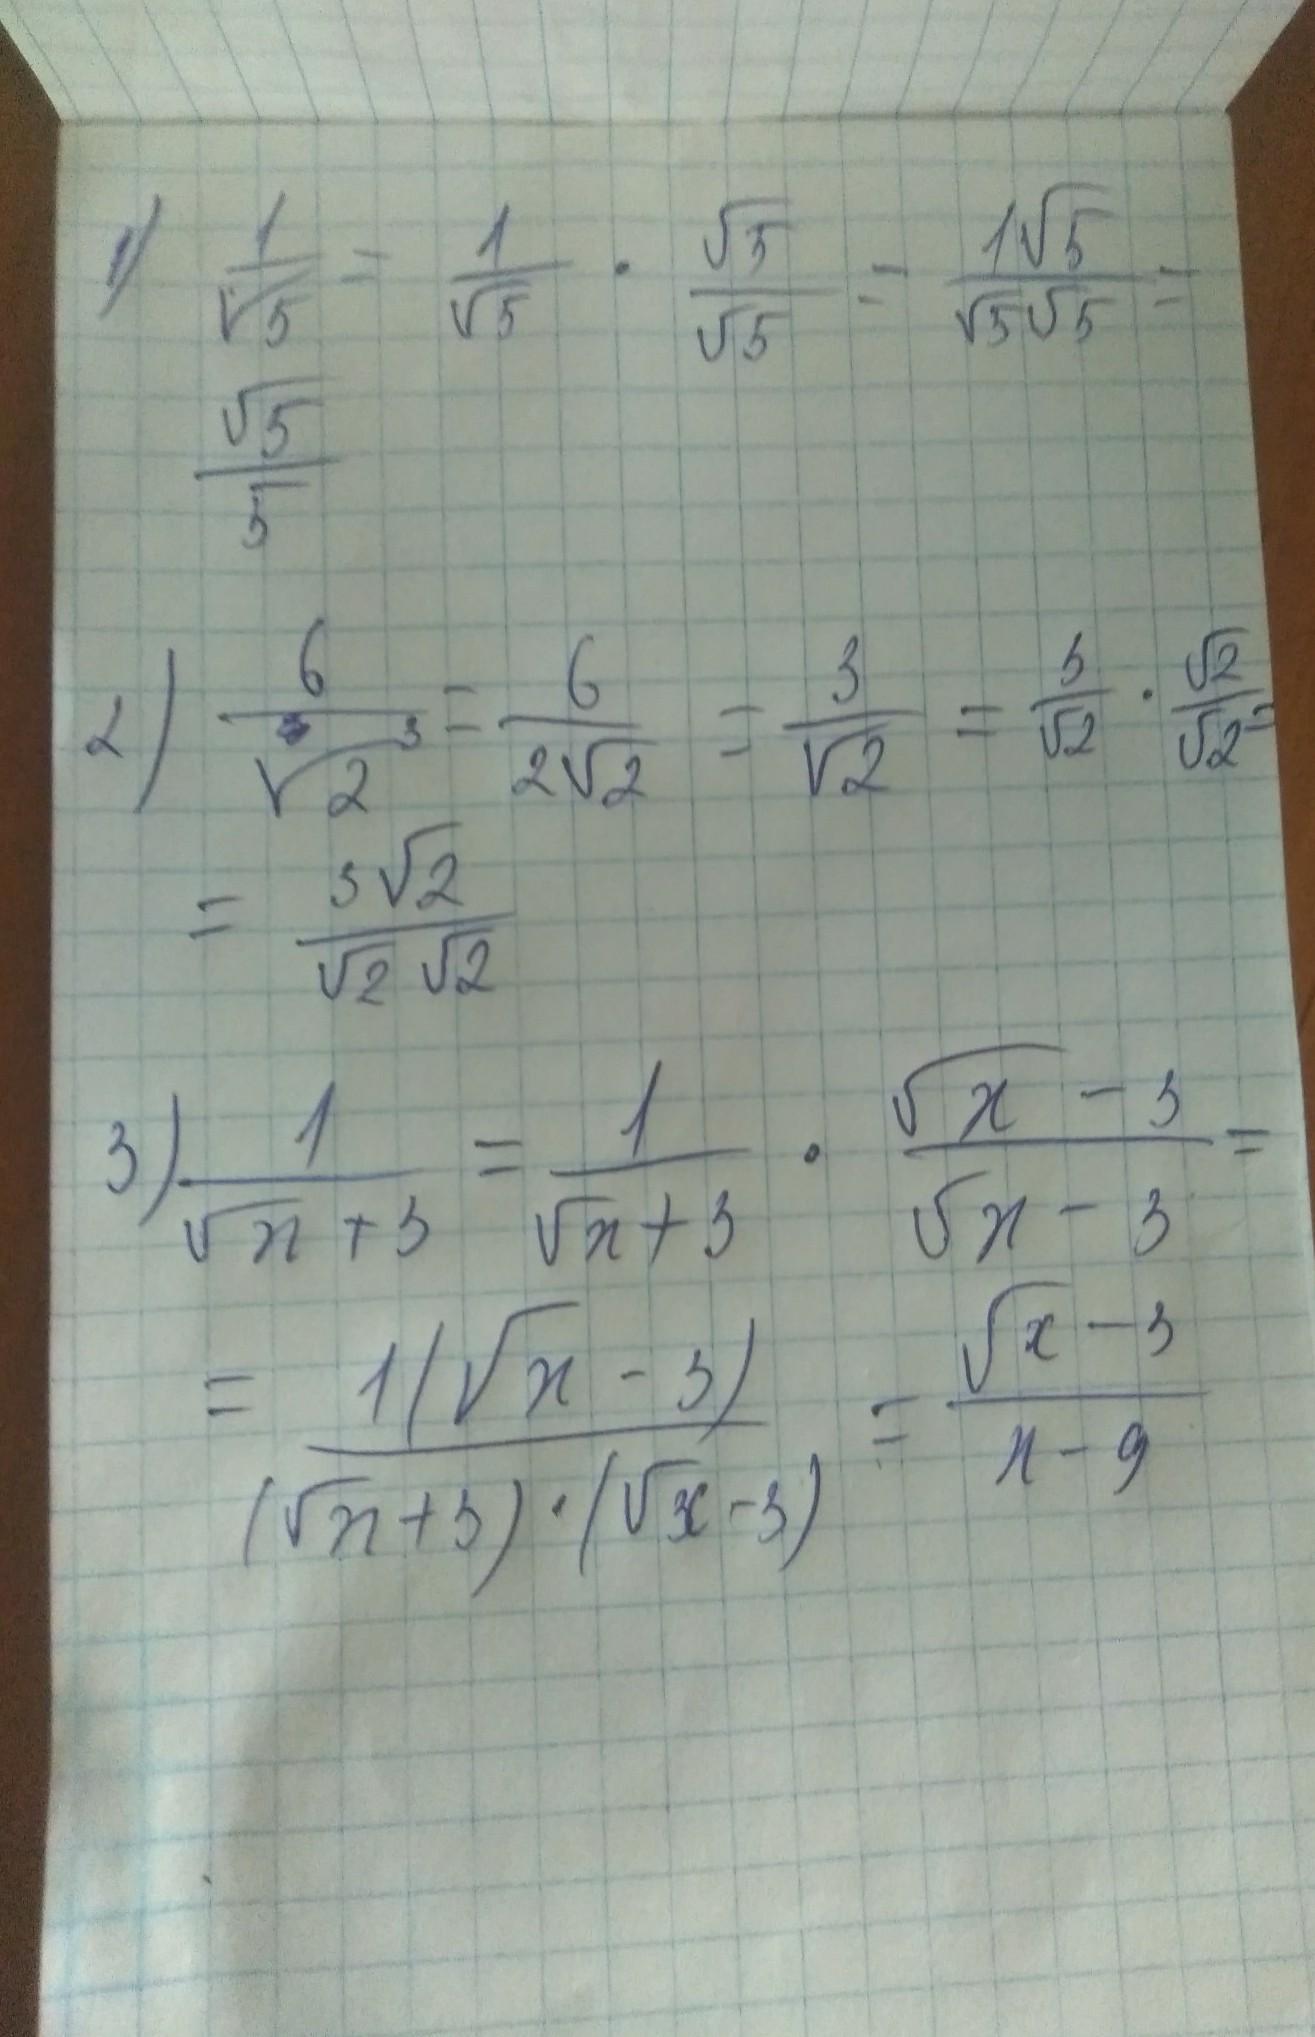 1) 1/√5 = 1/√5 · √5/√5 = 1√5/√5√5 =
√5/5
2) 6/√2³ = 6/2√2 = 3/√2 = 3/√2 · √2/√2 =
= 3√2/√2 √2
3) 1/√x + 3 = 1/√x + 3 · √x - 3/√x - 3 =
= 1(√x - 3)/(√x + 3) · (√x - 3) = √x - 3/x - 9